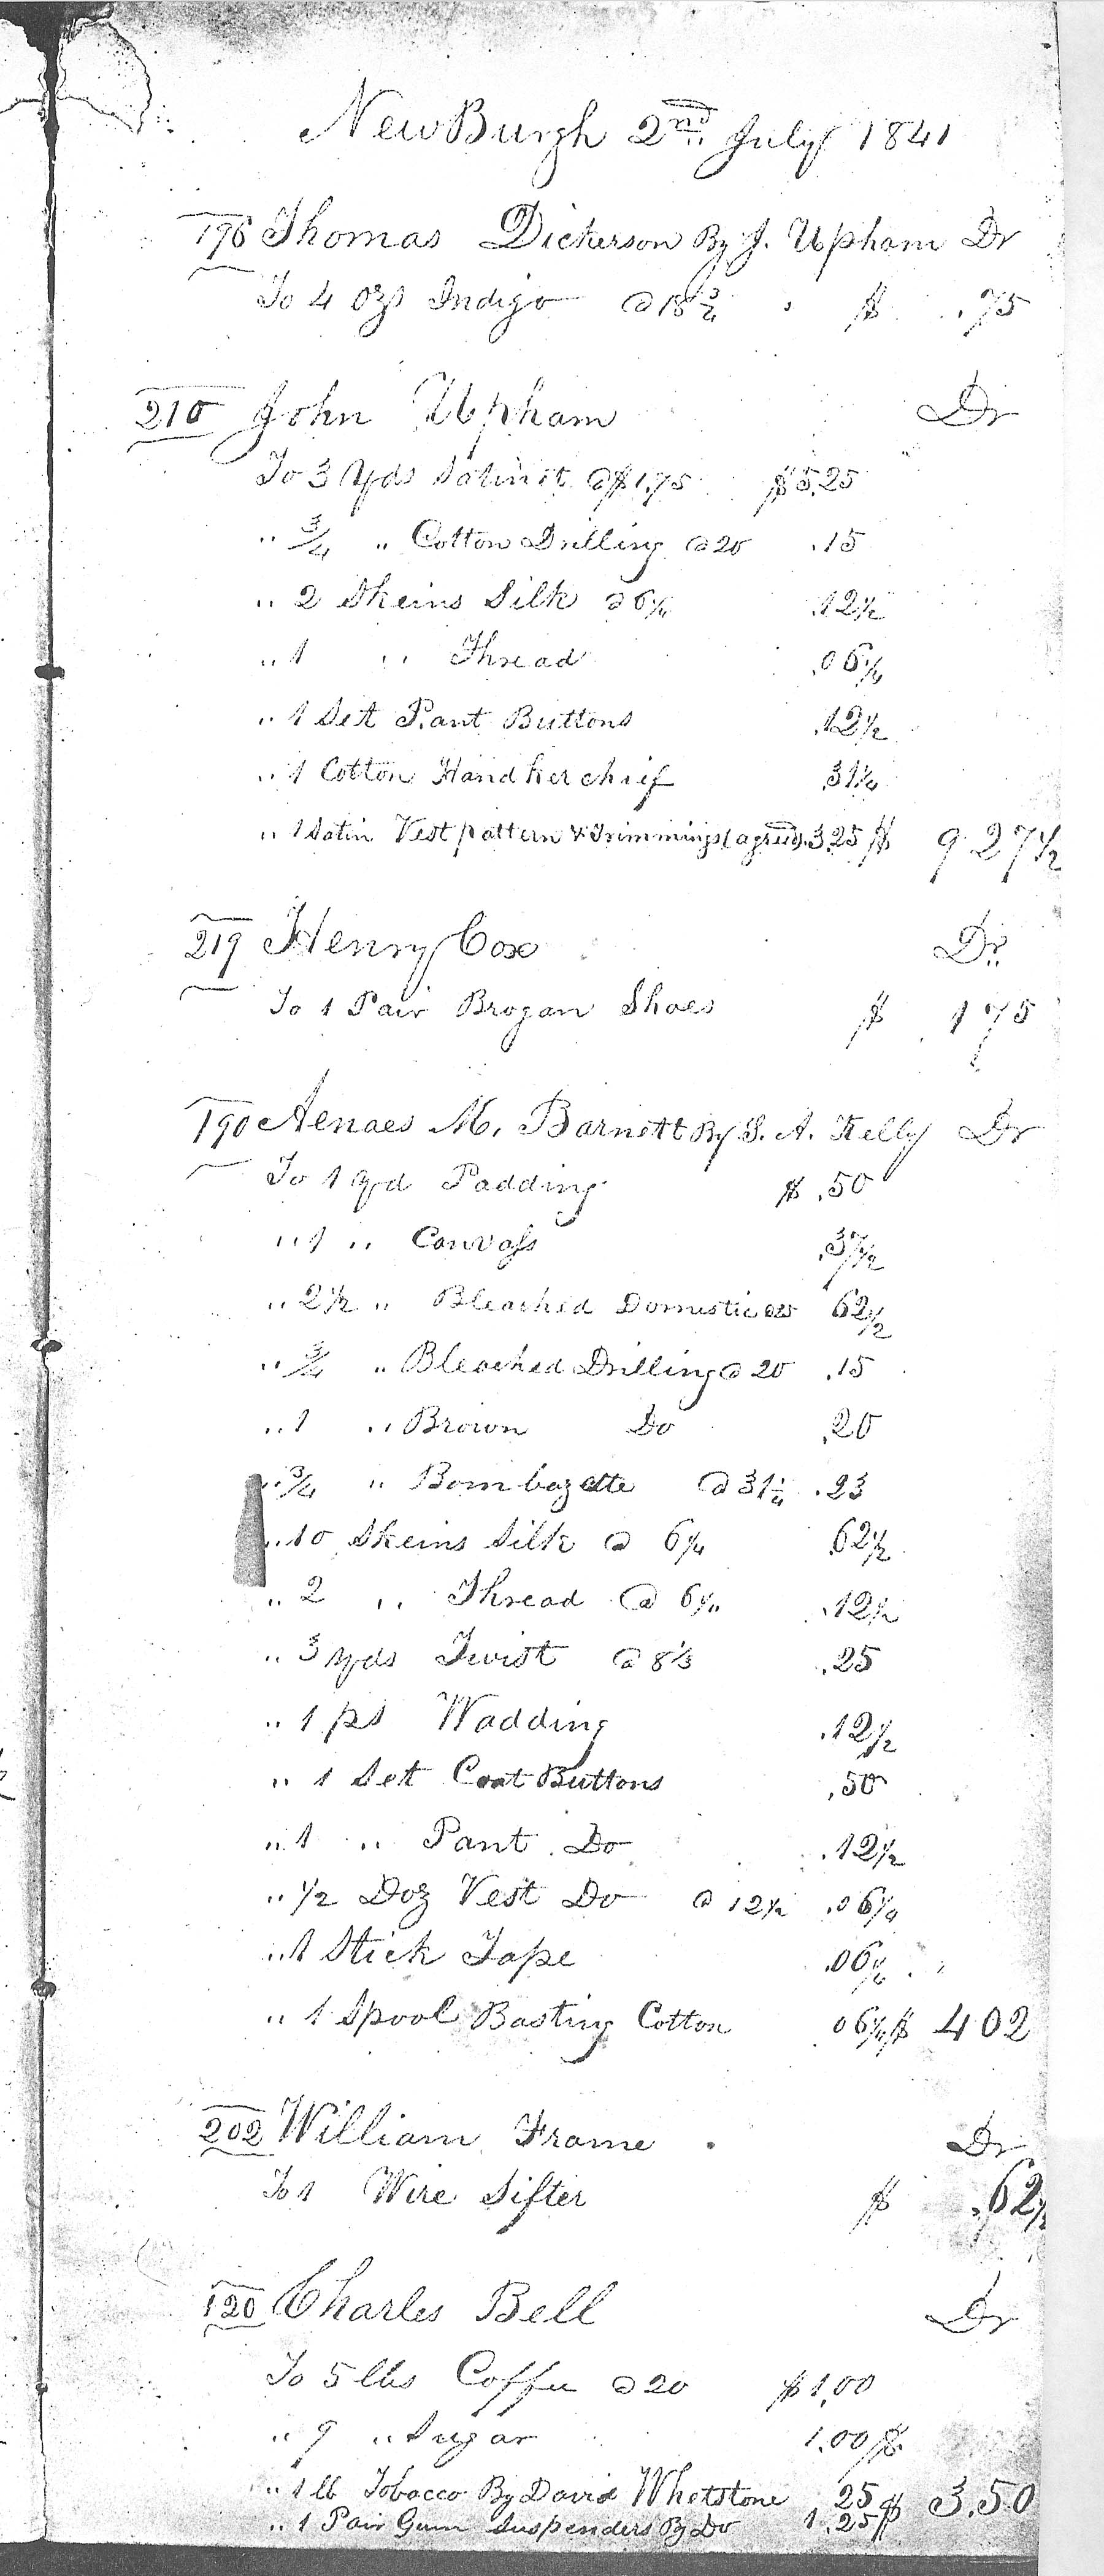 NewBurgh 2nd July 1841
196 Thomas Dickerson By J. Upham Dr
To 4 ozs Indigo @ 18 3/4 $ .75
210 John Upham Dr
To 3 Yds Satinett @ $1.75 $5.25
" 3/4 " Cotton Drilling @ 20 .15
" 2 Skeins Silk @ 6 1/4 .12 1/2
" 1 " Thread .06 1/4
" 1 Set Pant Buttons .12 1/2
" 1 Cotton Handkerchief .31 1/4
" 1 Satin Vest pattern & Trimmings (agreed) 3.25 $ 9.27 1/2
219 Henry Cox Dr
To 1 Pair Brogan Shoes $ 1 75
190 Aenaes M. Barnett By S. A. Kelly Dr
To 1 yd Padding $ .50
" 1 " Canvass .37 1/2
" 2 1/2 " Bleached Domestic @ 25 62 1/2
" 3/4 " Bleached Drilling @ 20 .15
" 1 " Brown Do .20
" 3/4 " Bombazette @ 31 1/4 .23
" 10 Skeins Silk @ 6 1/4 .62 1/2
" 2 " Thread @ 6 1/4 .12 1/2
" 3 Yds Twist @ 8 1/3 .25
" 1 ps Wadding .12 1/2
" 1 Set Coat Buttons .50
" 1 " Pant Do .12 1/2
" 1/2 Doz Vest Do @ 12 1/2 .06 1/4
" 1 Stick Tape .06 1/4
" 1 Spool Basting Cotton 06 1/4 $ 4 02
202 William Frame Dr
To 1 Wire Sifter $ .62 1/2
120 Charles Bell Dr
To 5 lbs Coffee @ 20 $1.00
" 9 " Sugar 1.00 $
" 1 lb Tobacco By David Whetstone 25 $ 3.50
" 1 Pair Gum Suspenders By Do 1.25 $